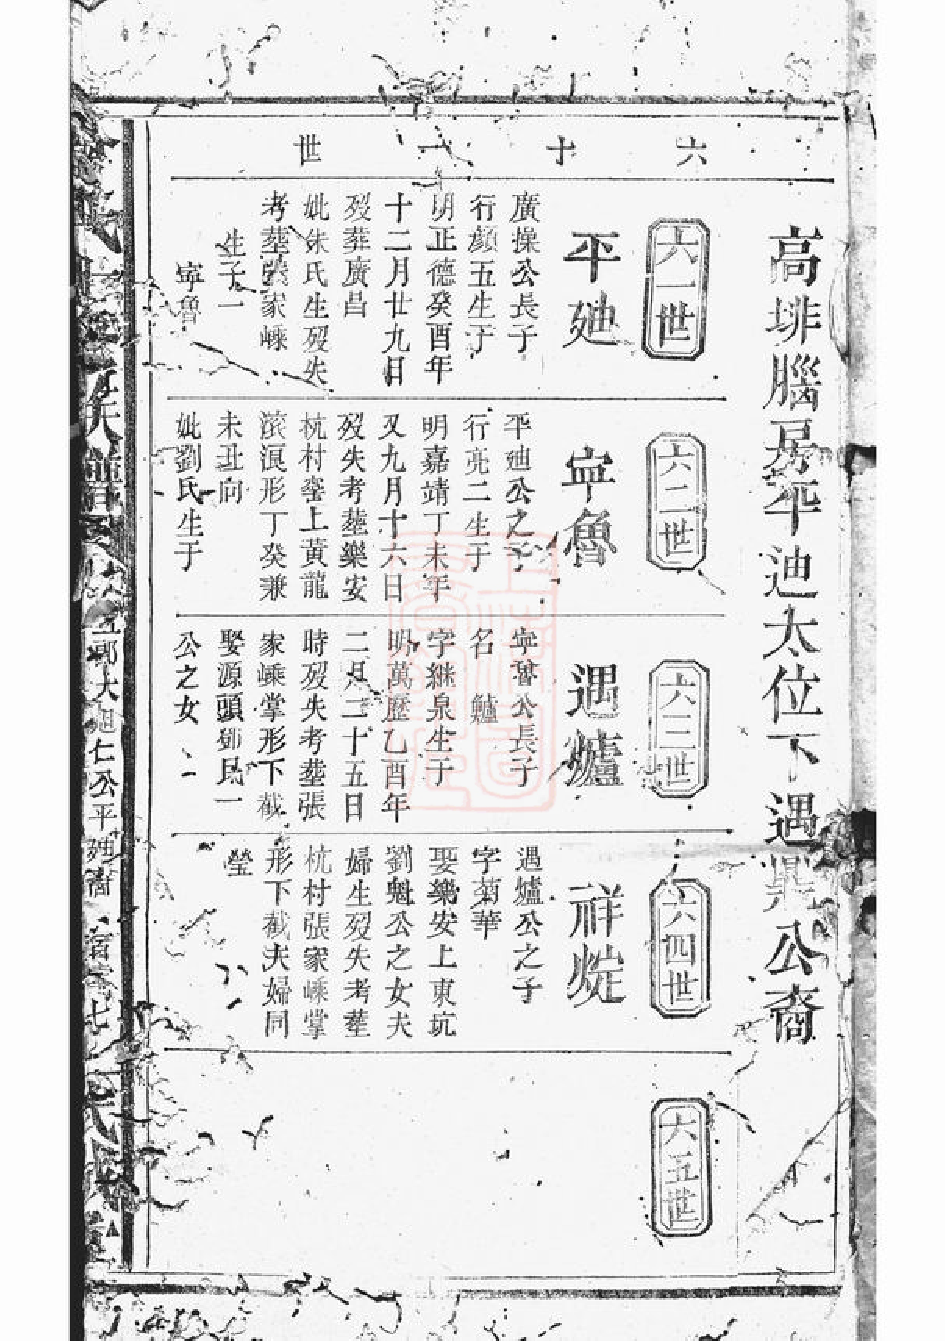 六十一世
高排腦房平迪太位下遇爵公裔
六一世
平廸
廣操公長子
行顏五生于
明正德癸酉年
十二月廿九日
歿葬廣昌
妣朱氏生歿失
考塟張家嵊
生子一
寧魯
六二世
寧魯
平廸公之子
行亮二生于
明嘉靖丁未年
又九月十六日
歿失考塟樂安
杭村壟上黃龍
滾湏形丁癸兼
未丑向
妣劉氏生于
六三世
遇爐
寧魯公長子
名鱸
字継泉生于
明萬歷乙酉年
二月二十五日
時歿失考塟張
家嵊掌形下截
娶源頭鄧民一
公之女
六四世
祥焢
遇爐公之子
字菊華
娶樂安上東坑
劉魁公之女夫
婦生歿失考塟
杭村張家嵊掌
形下截夫婦同
塋
六五世
氏 族譜
五郎大旭仁公平廸裔